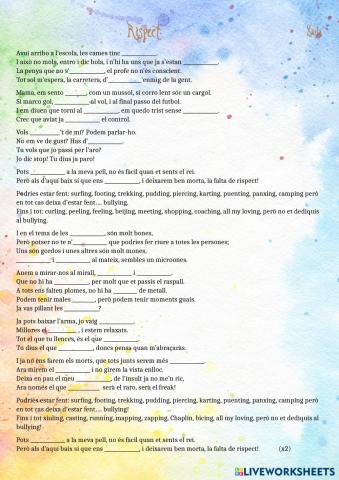 Respect
Xula
Avui arribo a l'escola, les cames tinc __________.
I això no mola, entro i dic hola, i n'hi ha uns que ja s'estan __________.
La penya que no s'__________, el profe no n'és conscient.
Tot sol m'espera, la carretera, d'__________ enmig de la gent.
Mama, em sento ______, com un mussol, si corro lent sóc un cargol.
Si marco gol, __________ al vol, i al final passo del futbol.
I em diuen que torni al __________, em quedo trist sense __________.
Crec que aviat ja __________ el control.
Vols ________'t de mi? Podem parlar-ho.
No em ve de gust? Has d'__________.
Tu vols que jo passi per l'aro?
Jo dic stop! Tu dius ja paro!
Pots __________ a la meva pell, no és fàcil quan et sents el rei.
Però als d'aquí baix si que ens __________, i deixarem ben morta, la falta de respecte!
Podries estar fent: surfing, footing, trekking, pudding, piercing, karting, puenting, panxing, camping però en tot cas deixa d'estar fent.... bullying.
Fins i tot: curling, peeling, feeling, beijing, meeting, shopping, coaching, all my loving, però no et dediquis al bullying.
I en el tema de les __________, són molt bones,
Però potser no te n'__________ que podries fer riure a totes les persones;
Uns són gordos i unes altres són molt mones,
__________ 'i __________ al mateix, sembles un microones.
Anem a mirar-nos al mirall, __________ i __________.
Que no hi ha __________, per molt que et passis el raspall.
A tots ens falten plomes, no hi ha _______ de metall.
Podem tenir males _______, però podem tenir moments guais.
Ja vas pillant les __________?
Ja pots baixar l'arma, jo vaig __________.
Millores el ________, i estem relaxats.
Tot el que tu llences, és el que __________.
Tu dius el que __________, doncs pensa quan m'abraçaràs.
I ja no ens farem els morts, que tots junts serem més __________.
Ara mirem el __________ i no girem la vista enlloc.
Deixa en pau el meu __________, de l'insult ja no me'n ric,
Ara només el que __________ serà el raro, serà el freak!
Podries estar fent: surfing, footing, trekking, pudding, piercing, karting, puenting, panxing, camping però en tot cas deixa d'estar fent.... bullying!
Fins i tot xiuling, casting, running, mapping, zapping, Chaplin, bicing, all my loving, però no et dediquis al bullying!
Pots __________ a la meva pell, no és fàcil quan et sents el rei.
Però als d'aquí baix si que ens __________, i deixarem ben morta, la falta de respecte! (x2)
LIVEWORKSHEETS